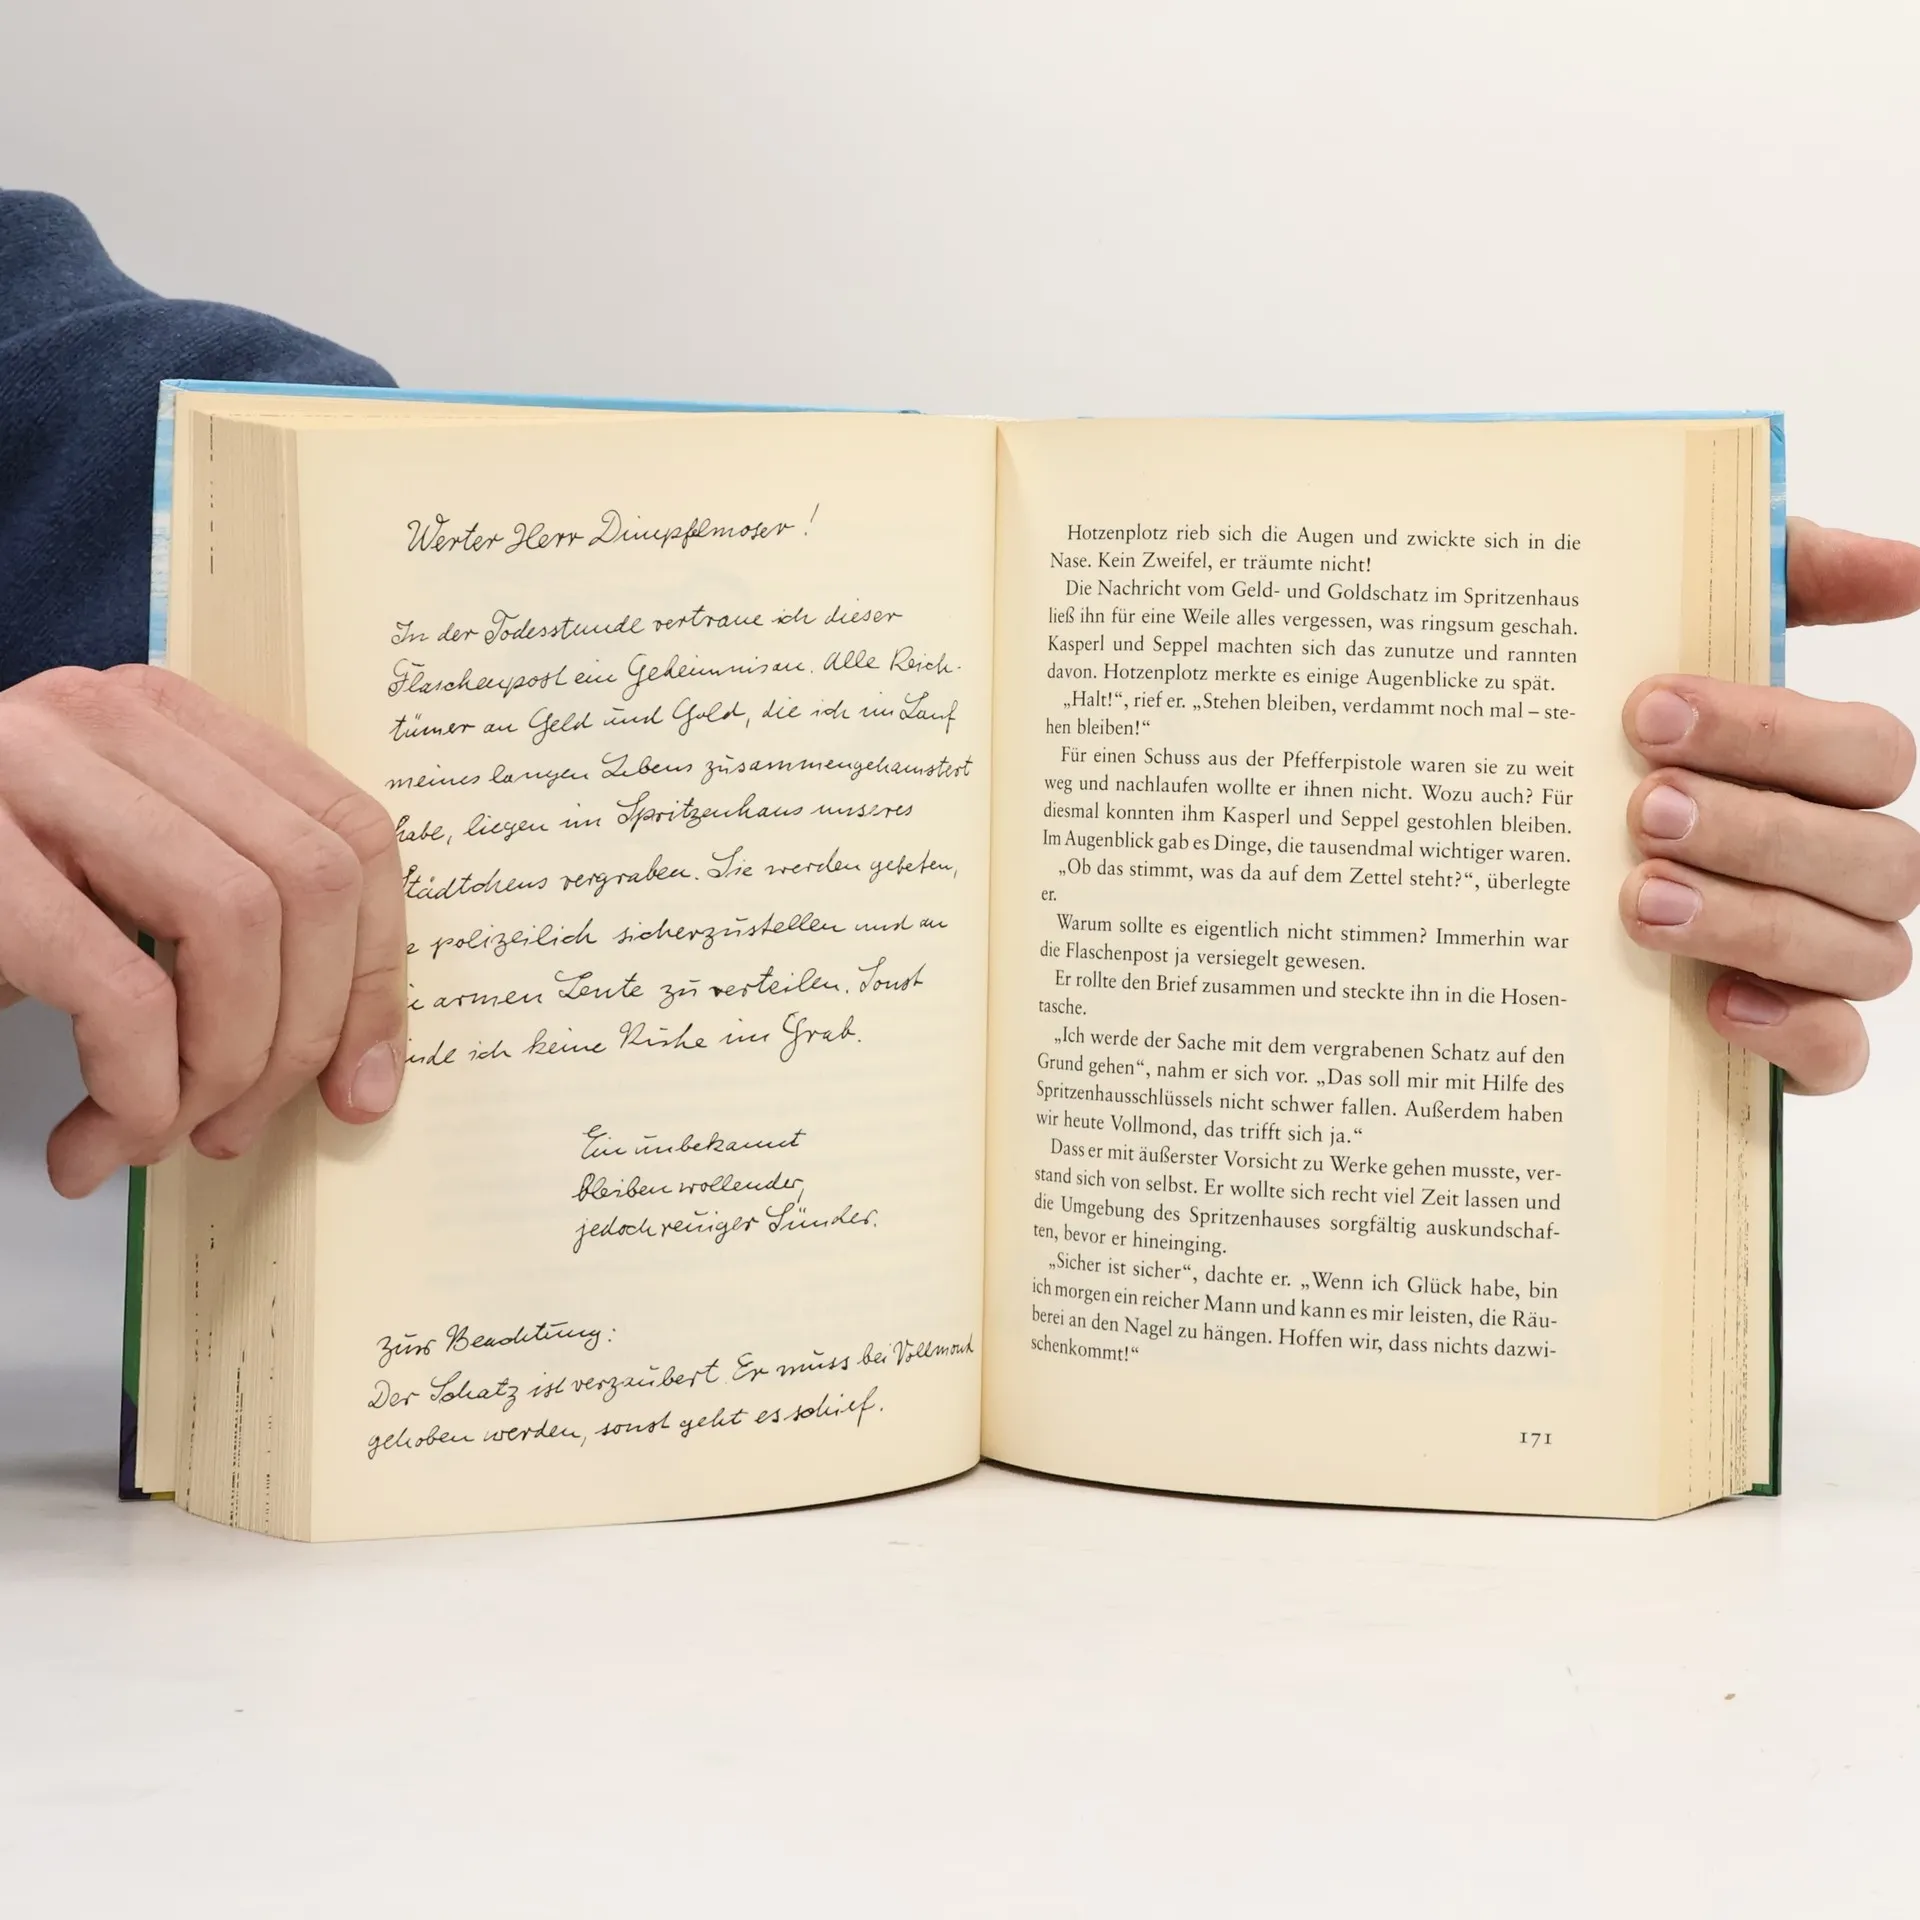 Werter Herr Dimpfelmoser!
In der Todesstunde vertraue ich dieser
Flaschenpost ein Geheimnis an. Alle Reich-
tümer an Geld und Gold, die ich im Lauf
meines langen Lebens zusammengehamstert
habe, liegen im Spritzenhaus unseres
Städtchens vergraben. Sie werden gebeten,
polizeilich sicherzustellen und an
armen Leute zu verteilen. Sonst
ich keine Ruhe im Grab.
Ein unbekannt
bleiben wollender,
jedoch reuiger Sünder.
Zur Beachtung:
Der Schatz ist verzaubert. Er muss bei Vollmond
gehoben werden, sonst geht es schief.
Hotzenplotz rieb sich die Augen und zwickte sich in die
Nase. Kein Zweifel, er träumte nicht!
Die Nachricht vom Geld- und Goldschatz im Spritzenhaus
ließ ihn für eine Weile alles vergessen, was ringsum geschah.
Kasperl und Seppel machten sich das zunutze und rannten
davon. Hotzenplotz merkte es einige Augenblicke zu spät.
„Halt!“, rief er. „Stehen bleiben, verdammt noch mal – ste-
hen bleiben!“
Für einen Schuss aus der Pfefferpistole waren sie zu weit
weg und nachlaufen wollte er ihnen nicht. Wozu auch? Für
diesmal konnten ihm Kasperl und Seppel gestohlen bleiben.
Im Augenblick gab es Dinge, die tausendmal wichtiger waren.
„Ob das stimmt, was da auf dem Zettel steht?“, überlegte
er.
Warum sollte es eigentlich nicht stimmen? Immerhin war
die Flaschenpost ja versiegelt gewesen.
Er rollte den Brief zusammen und steckte ihn in die Hosen-
tasche.
„Ich werde der Sache mit dem vergrabenen Schatz auf den
Grund gehen“, nahm er sich vor. „Das soll mir mit Hilfe des
Spritzenhausschlüssels nicht schwer fallen. Außerdem haben
wir heute Vollmond, das trifft sich ja.“
Dass er mit äußerster Vorsicht zu Werke gehen musste, ver-
stand sich von selbst. Er wollte sich recht viel Zeit lassen und
die Umgebung des Spritzenhauses sorgfältig auskundschaf-
ten, bevor er hineinging.
„Sicher ist sicher“, dachte er. „Wenn ich Glück habe, bin
ich morgen ein reicher Mann und kann es mir leisten, die Räu-
berei an den Nagel zu hängen. Hoffen wir, dass nichts dazwi-
schenkommt!“
171